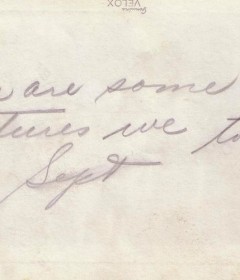 VELOX
are some
tures we to
Sept